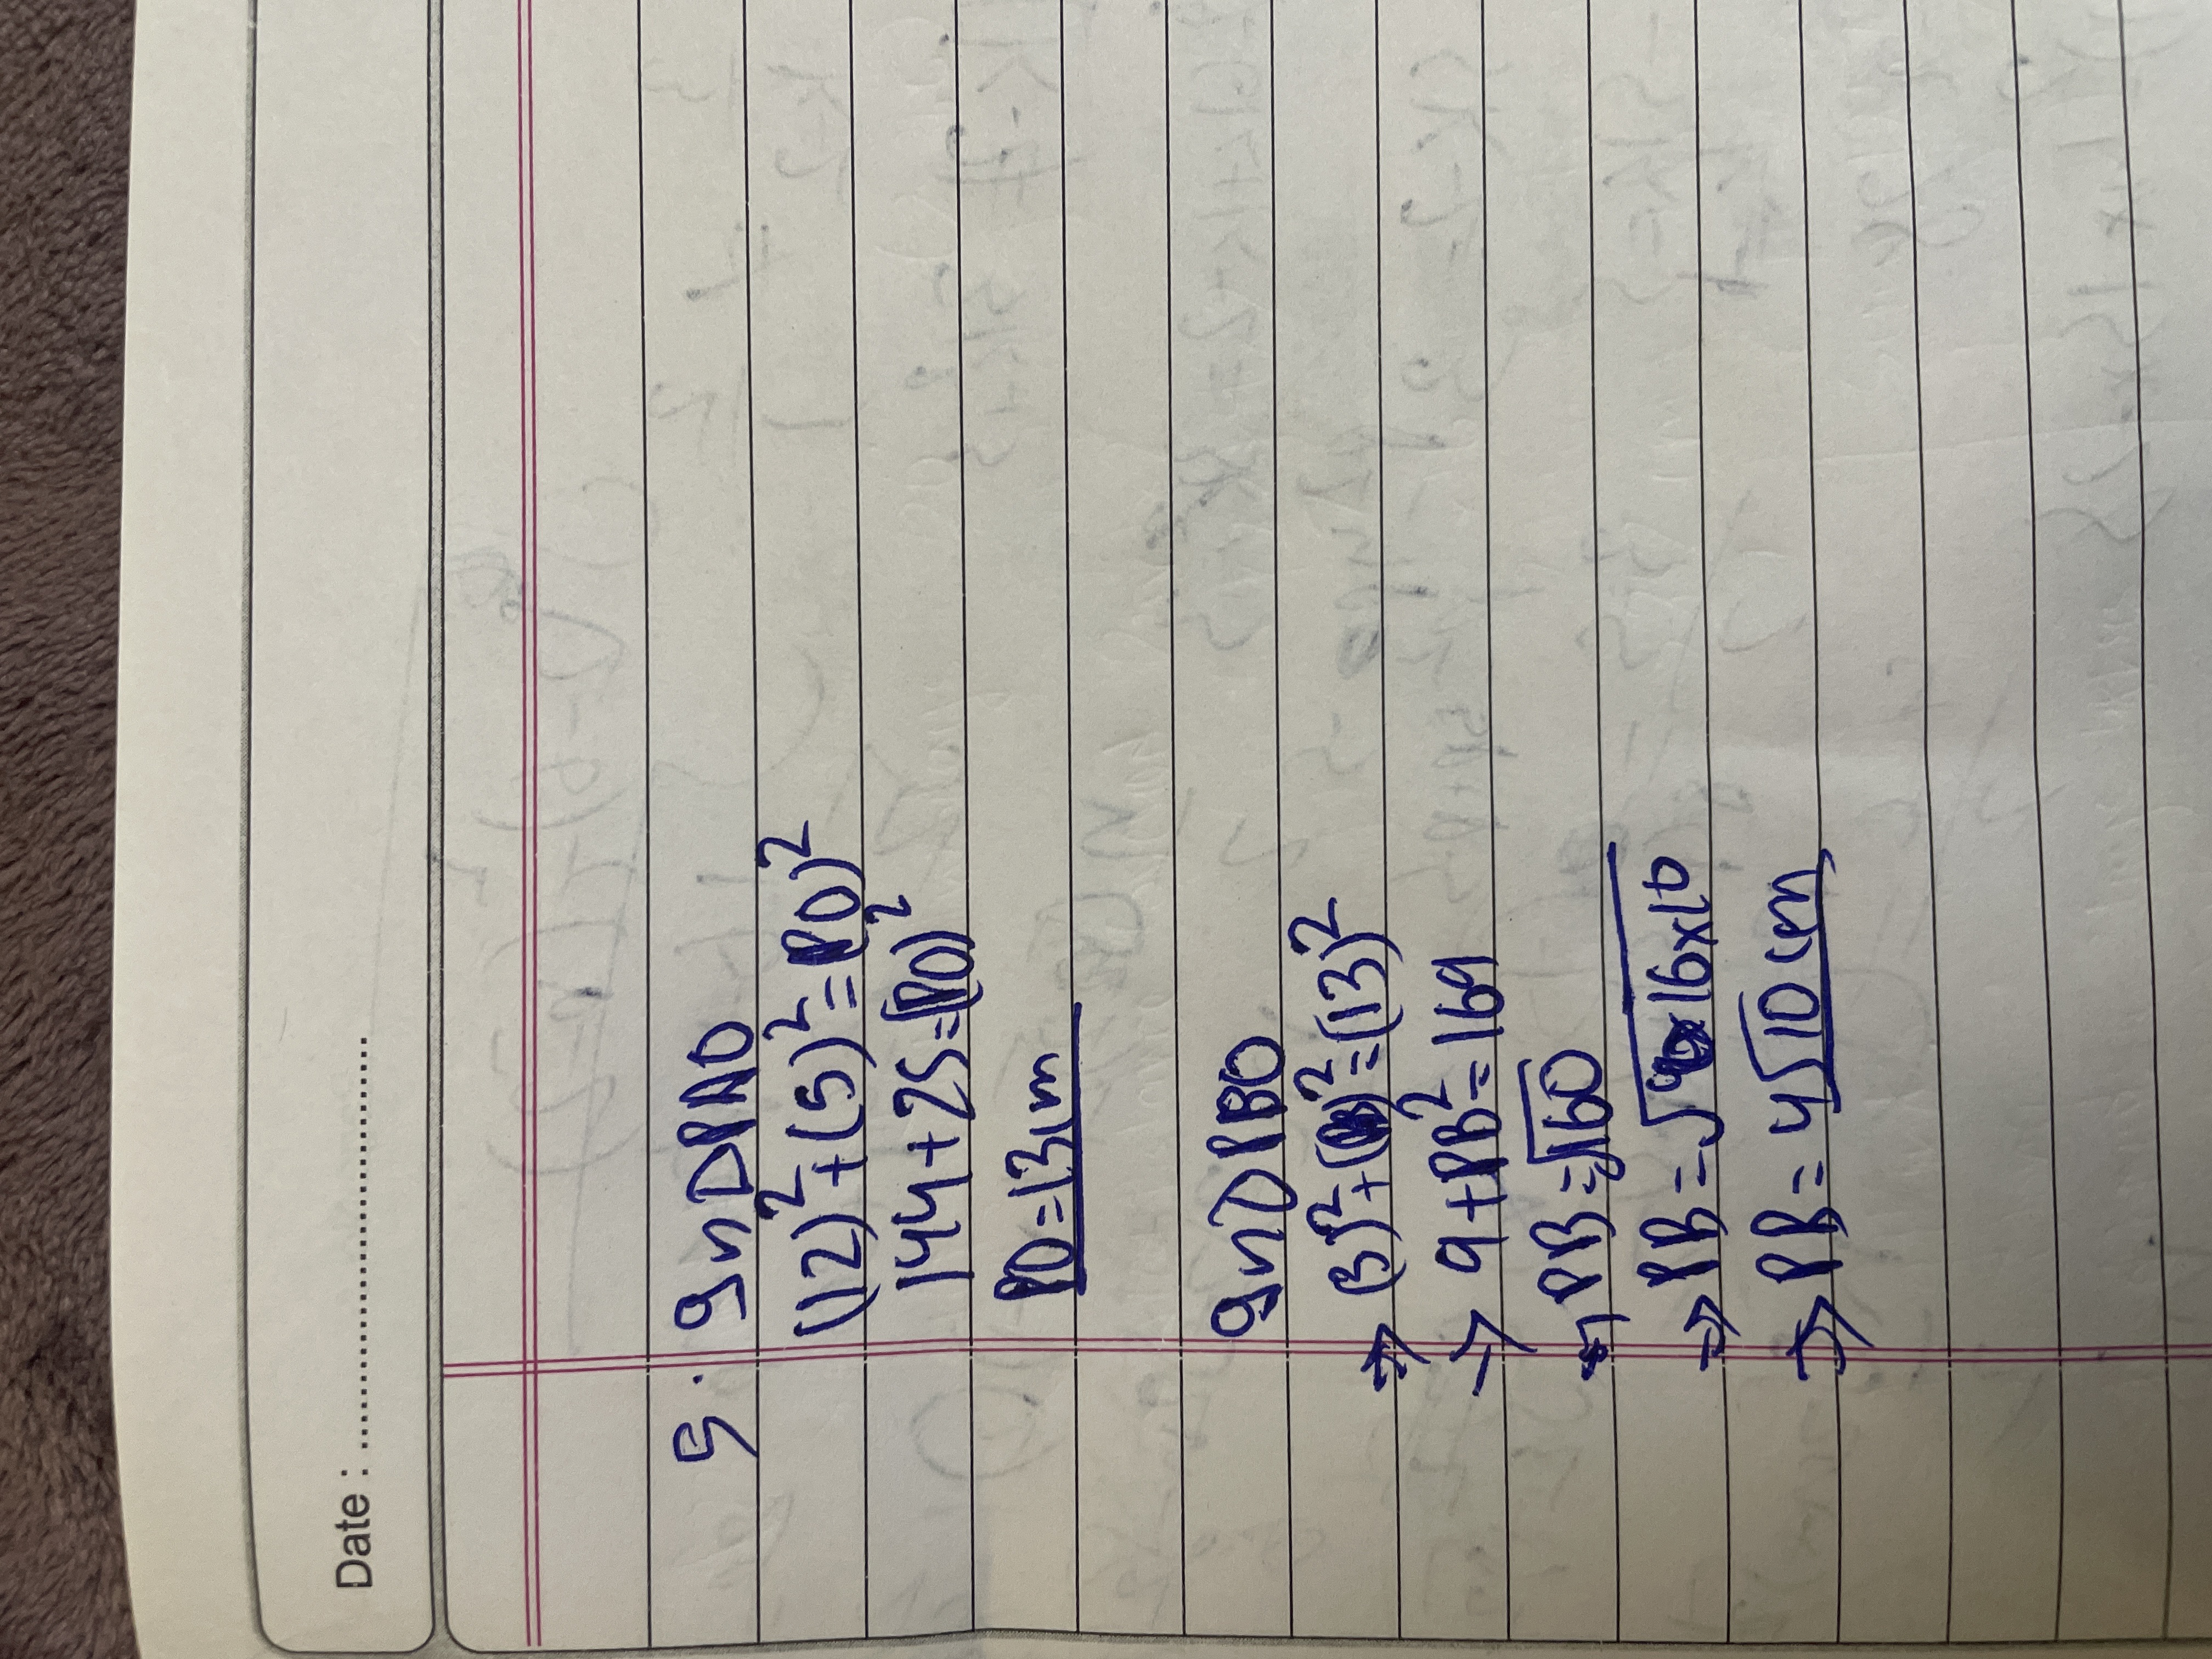 Date : ..............................
5. In △PAO
(12)² + (5)² = PO)²
144 + 25 = (PO)²
PO = 13cm
In △PBO
⇒ (3)² + (PB)² = (13)²
⇒ 9 + PB² = 169
⇒ PB = √160
⇒ PB = √16×10
⇒ PB = 4√10 cm